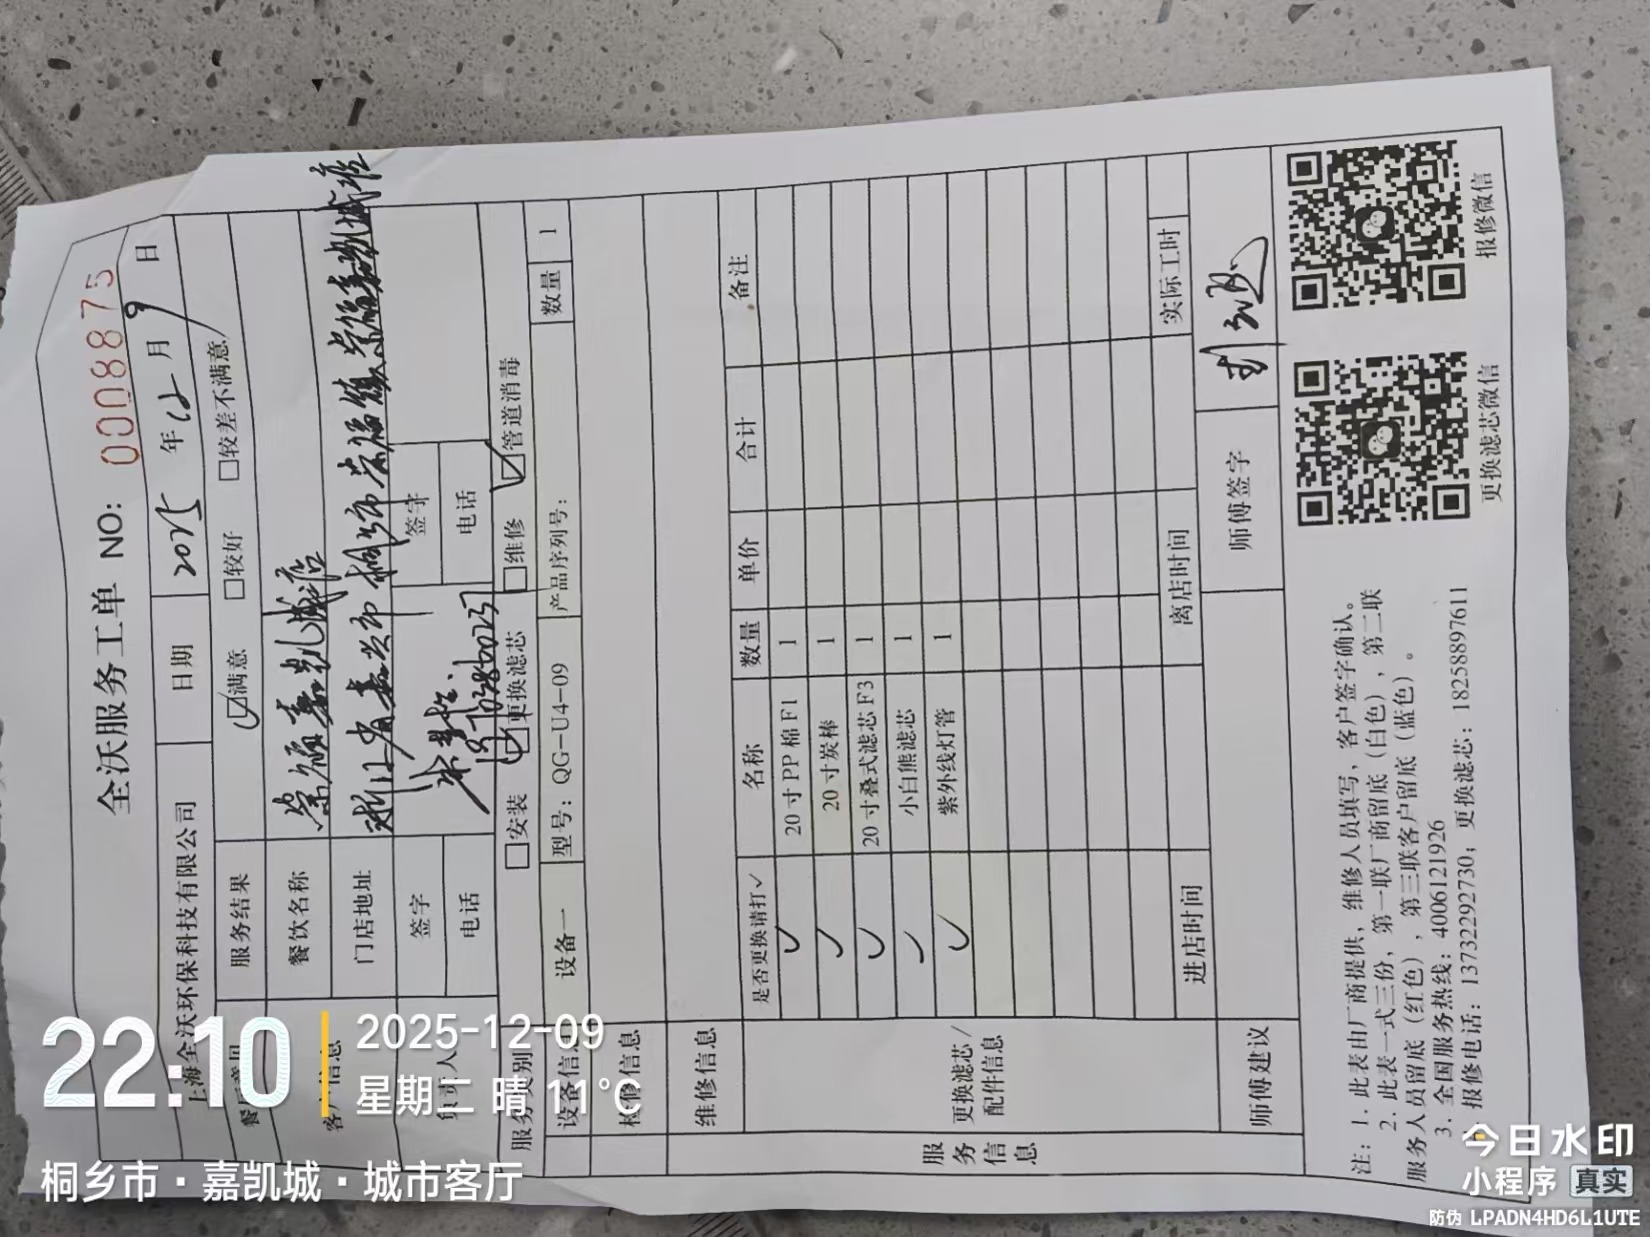 全沃服务工单 NO: 0008875
上海全沃环保科技有限公司 日期 2025 年 12 月 9 日
服务结果 ☑满意 □较好 □较差不满意
餐饮名称 崇福嘉凯城店
客户信息 门店地址 浙江省嘉兴市桐乡市崇福镇崇福嘉凯城店
负责人 签字 签字
电话 电话
服务类别 □安装 ☑更换滤芯 □维修 ☑管道消毒
设备信息 设备一 型号：QG-U4-09 产品序列号： 数量 1
检修信息
维修信息
服务信息
更换滤芯/配件信息
是否更换请打✓ 名称 数量 单价 合计 备注
✓ 20寸PP棉F1 1
✓ 20寸炭棒 1
✓ 20寸叠式滤芯F3 1
✓ 小白熊滤芯 1
✓ 紫外线灯管 1
进店时间 离店时间 实际工时
师傅建议 师傅签字
注：1. 此表由厂商提供，维修人员填写，客户签字确认。
2. 此表一式三份，第一联厂商留底（白色），第二联
服务人员留底（红色），第三联客户留底（蓝色）。
3. 全国服务热线：4006121926
报修电话：13732292730；更换滤芯：18258897611
更换滤芯微信
报修微信
22:10
2025-12-09
星期二 晴 11°C
桐乡市·嘉凯城·城市客厅
今日水印
小程序 真实
防伪 LPADN4HD6L1UTE